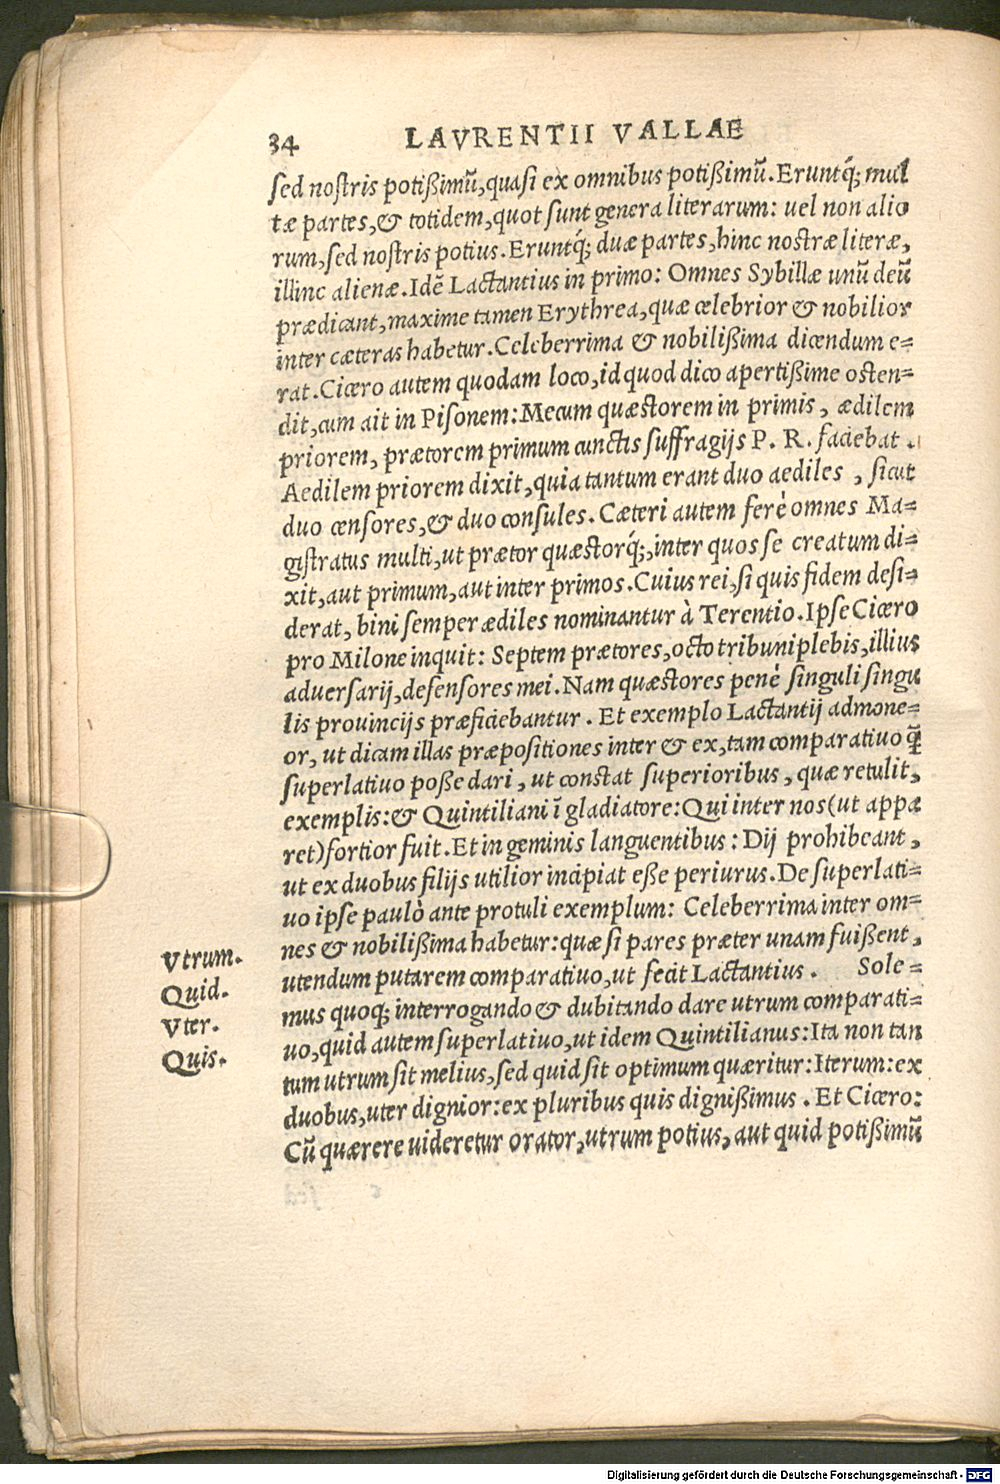 34 LAVRENTII VALLAE
sed nostris potißimū, quasi ex omnibus potißimū. Eruntq́; mul
tæ partes, & totidem, quot sunt genera literarum: uel non alio
rum, sed nostris potius. Eruntq́; duæ partes, hinc nostræ literæ,
illinc alienæ. Idē Lactantius in primo: Omnes Sybillæ unū deū
prædicant, maxime tamen Erythrea, quæ celebrior & nobilior
inter cæteras habetur. Celeberrima & nobilißima dicendum e=
rat. Cicero autem quodam loco, id quod dico apertißime osten=
dit, cum ait in Pisonem: Mecum quæstorem in primis, ædilem
priorem, prætorem primum cunctis suffragijs P. R. faciebat.
Aedilem priorem dixit, quia tantum erant duo aediles, sicut
duo censores, & duo consules. Cæteri autem ferè omnes Ma=
gistratus multi, ut prætor quæstorq́;, inter quos se creatum di=
xit, aut primum, aut inter primos. Cuius rei, si quis fidem desi=
derat, bini semper ædiles nominantur à Terentio. Ipse Cicero
pro Milone inquit: Septem prætores, octo tribuni plebis, illius
aduersarij, defensores mei. Nam quæstores penè singuli singu
lis prouincijs præficiebantur. Et exemplo Lactantij admone=
or, ut dicam illas præpositiones inter & ex, tam comparatiuo q̄
superlatiuo poße dari, ut constat superioribus, quæ retulit,
exemplis: & Quintiliani ī gladiatore: Qui inter nos (ut appa
ret) fortior fuit. Et in geminis languentibus: Dij prohibeant,
ut ex duobus filijs utilior incipiat eße periurus. De superlati=
uo ipse paulò ante protuli exemplum: Celeberrima inter om=
nes & nobilißima habetur: quæ si pares præter unam fuißent,
utendum putarem comparatiuo, ut fecit Lactantius. Sole=
Vtrum.
Quid.
Vter.
Quis.
mus quoq; interrogando & dubitando dare utrum comparati=
uo, quid autem superlatiuo, ut idem Quintilianus: Ita non tan
tum utrum sit melius, sed quid sit optimum quæritur: Iterum: ex
duobus, uter dignior: ex pluribus quis dignißimus. Et Cicero:
Cū quærere uideretur orator, utrum potius, aut quid potißimū
Digitalisierung gefördert durch die Deutsche Forschungsgemeinschaft - DFG